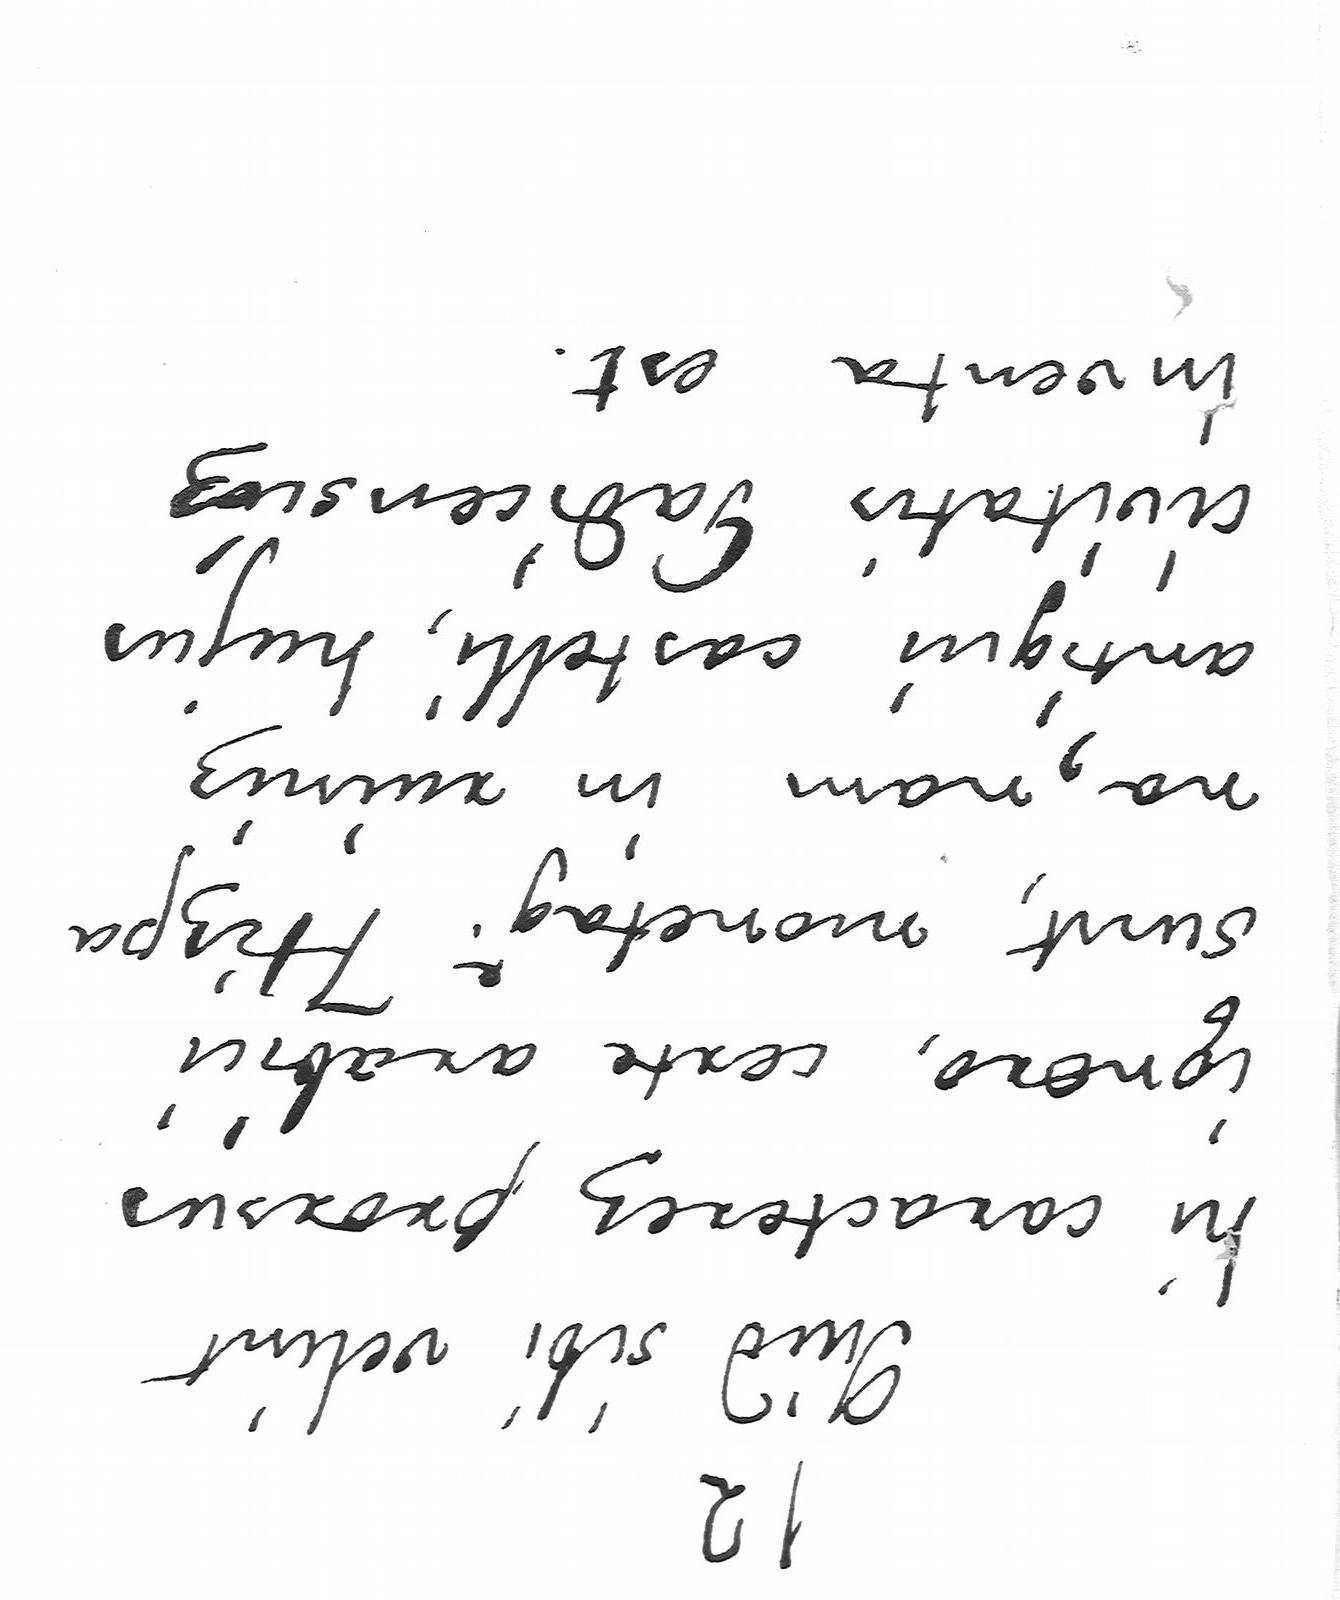 12
Quid sibi velint
hi caracteres prorsus
ignoro, certe arabici
sunt, monetaq̃. Hispa
na, nam in ruinis
antiqui castelli, hujus
civitatis Gadicensis
inventa est.